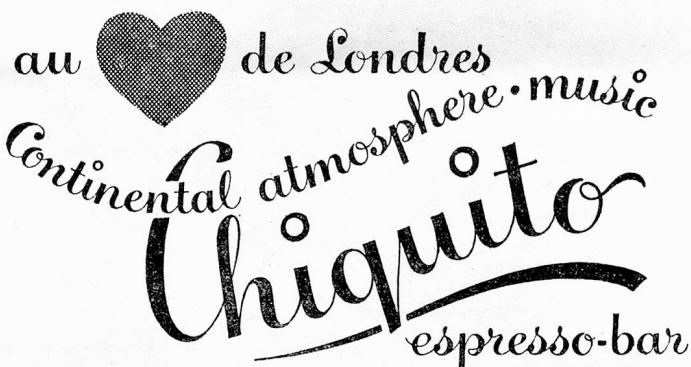 au de Londres
Continental atmosphere · music
Chiquito
espresso-bar